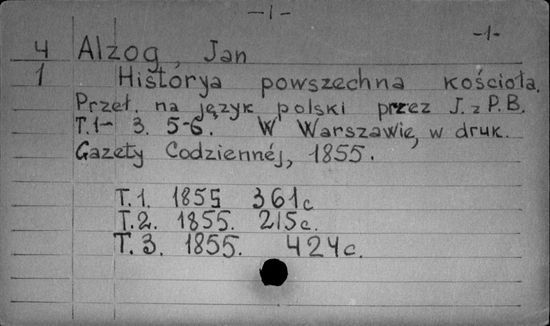 -1-
-1-
4 Alzog, Jan
1 Historya powszechna kościoła.
Przeł. na język polski przez J. z P. B.
T.1- 3. 5-6. W Warszawie, w druk.
Gazety Codziennéj, 1855.
T.1. 1855 361c
T.2. 1855. 215c.
T.3. 1855. 424c.